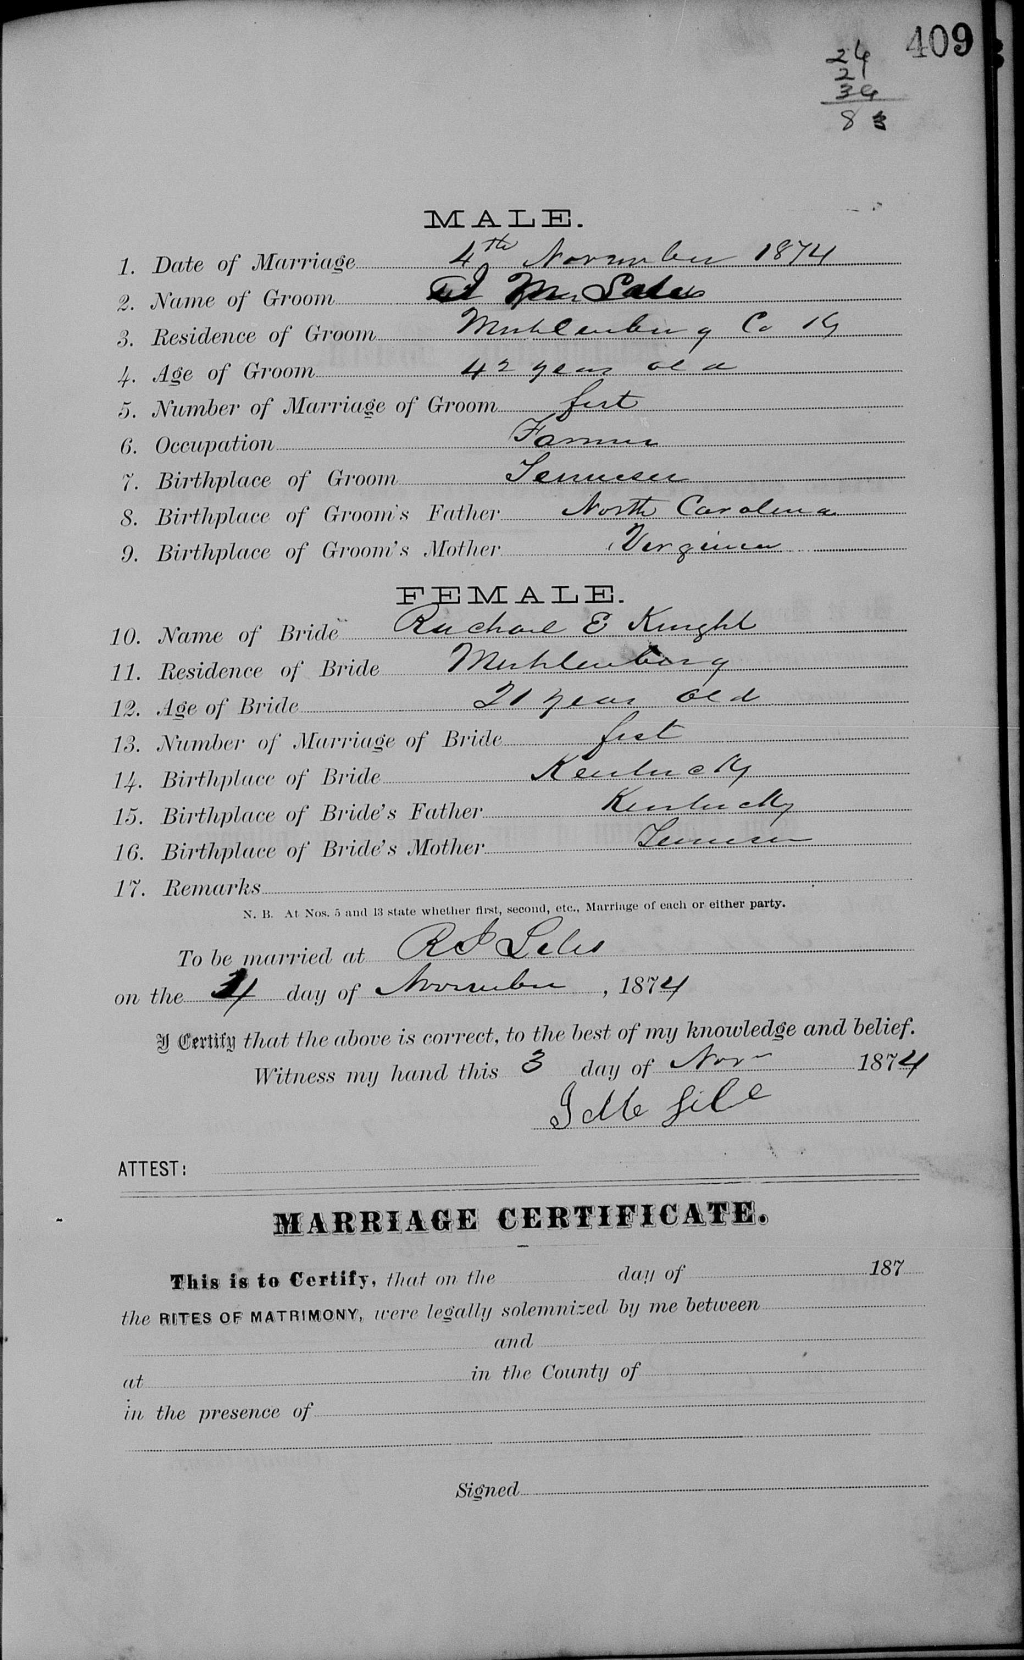 409
24
21
8
MALE.
1. Date of Marriage 4th November 1874
2. Name of Groom
3. Residence of Groom Muhlenburg Co Ky
4. Age of Groom 42 years old
5. Number of Marriage of Groom first
6. Occupation Farmer
7. Birthplace of Groom Tennessee
8. Birthplace of Groom's Father North Carolina
9. Birthplace of Groom's Mother Verginia
FEMALE.
10. Name of Bride Rachael E Knight
11. Residence of Bride Muhlenburg
12. Age of Bride 21 years old
13. Number of Marriage of Bride first
14. Birthplace of Bride Kentucky
15. Birthplace of Bride's Father Kentucky
16. Birthplace of Bride's Mother Tennessee
17. Remarks
N. B. At Nos. 5 and 13 state whether first, second, etc., Marriage of each or either party.
To be married at
on the 4 day of November, 1874
I Certify that the above is correct, to the best of my knowledge and belief.
Witness my hand this 3 day of Nov 1874
ATTEST:
MARRIAGE CERTIFICATE.
This is to Certify, that on the day of 187
the RITES OF MATRIMONY, were legally solemnized by me between
and
at in the County of
in the presence of
Signed